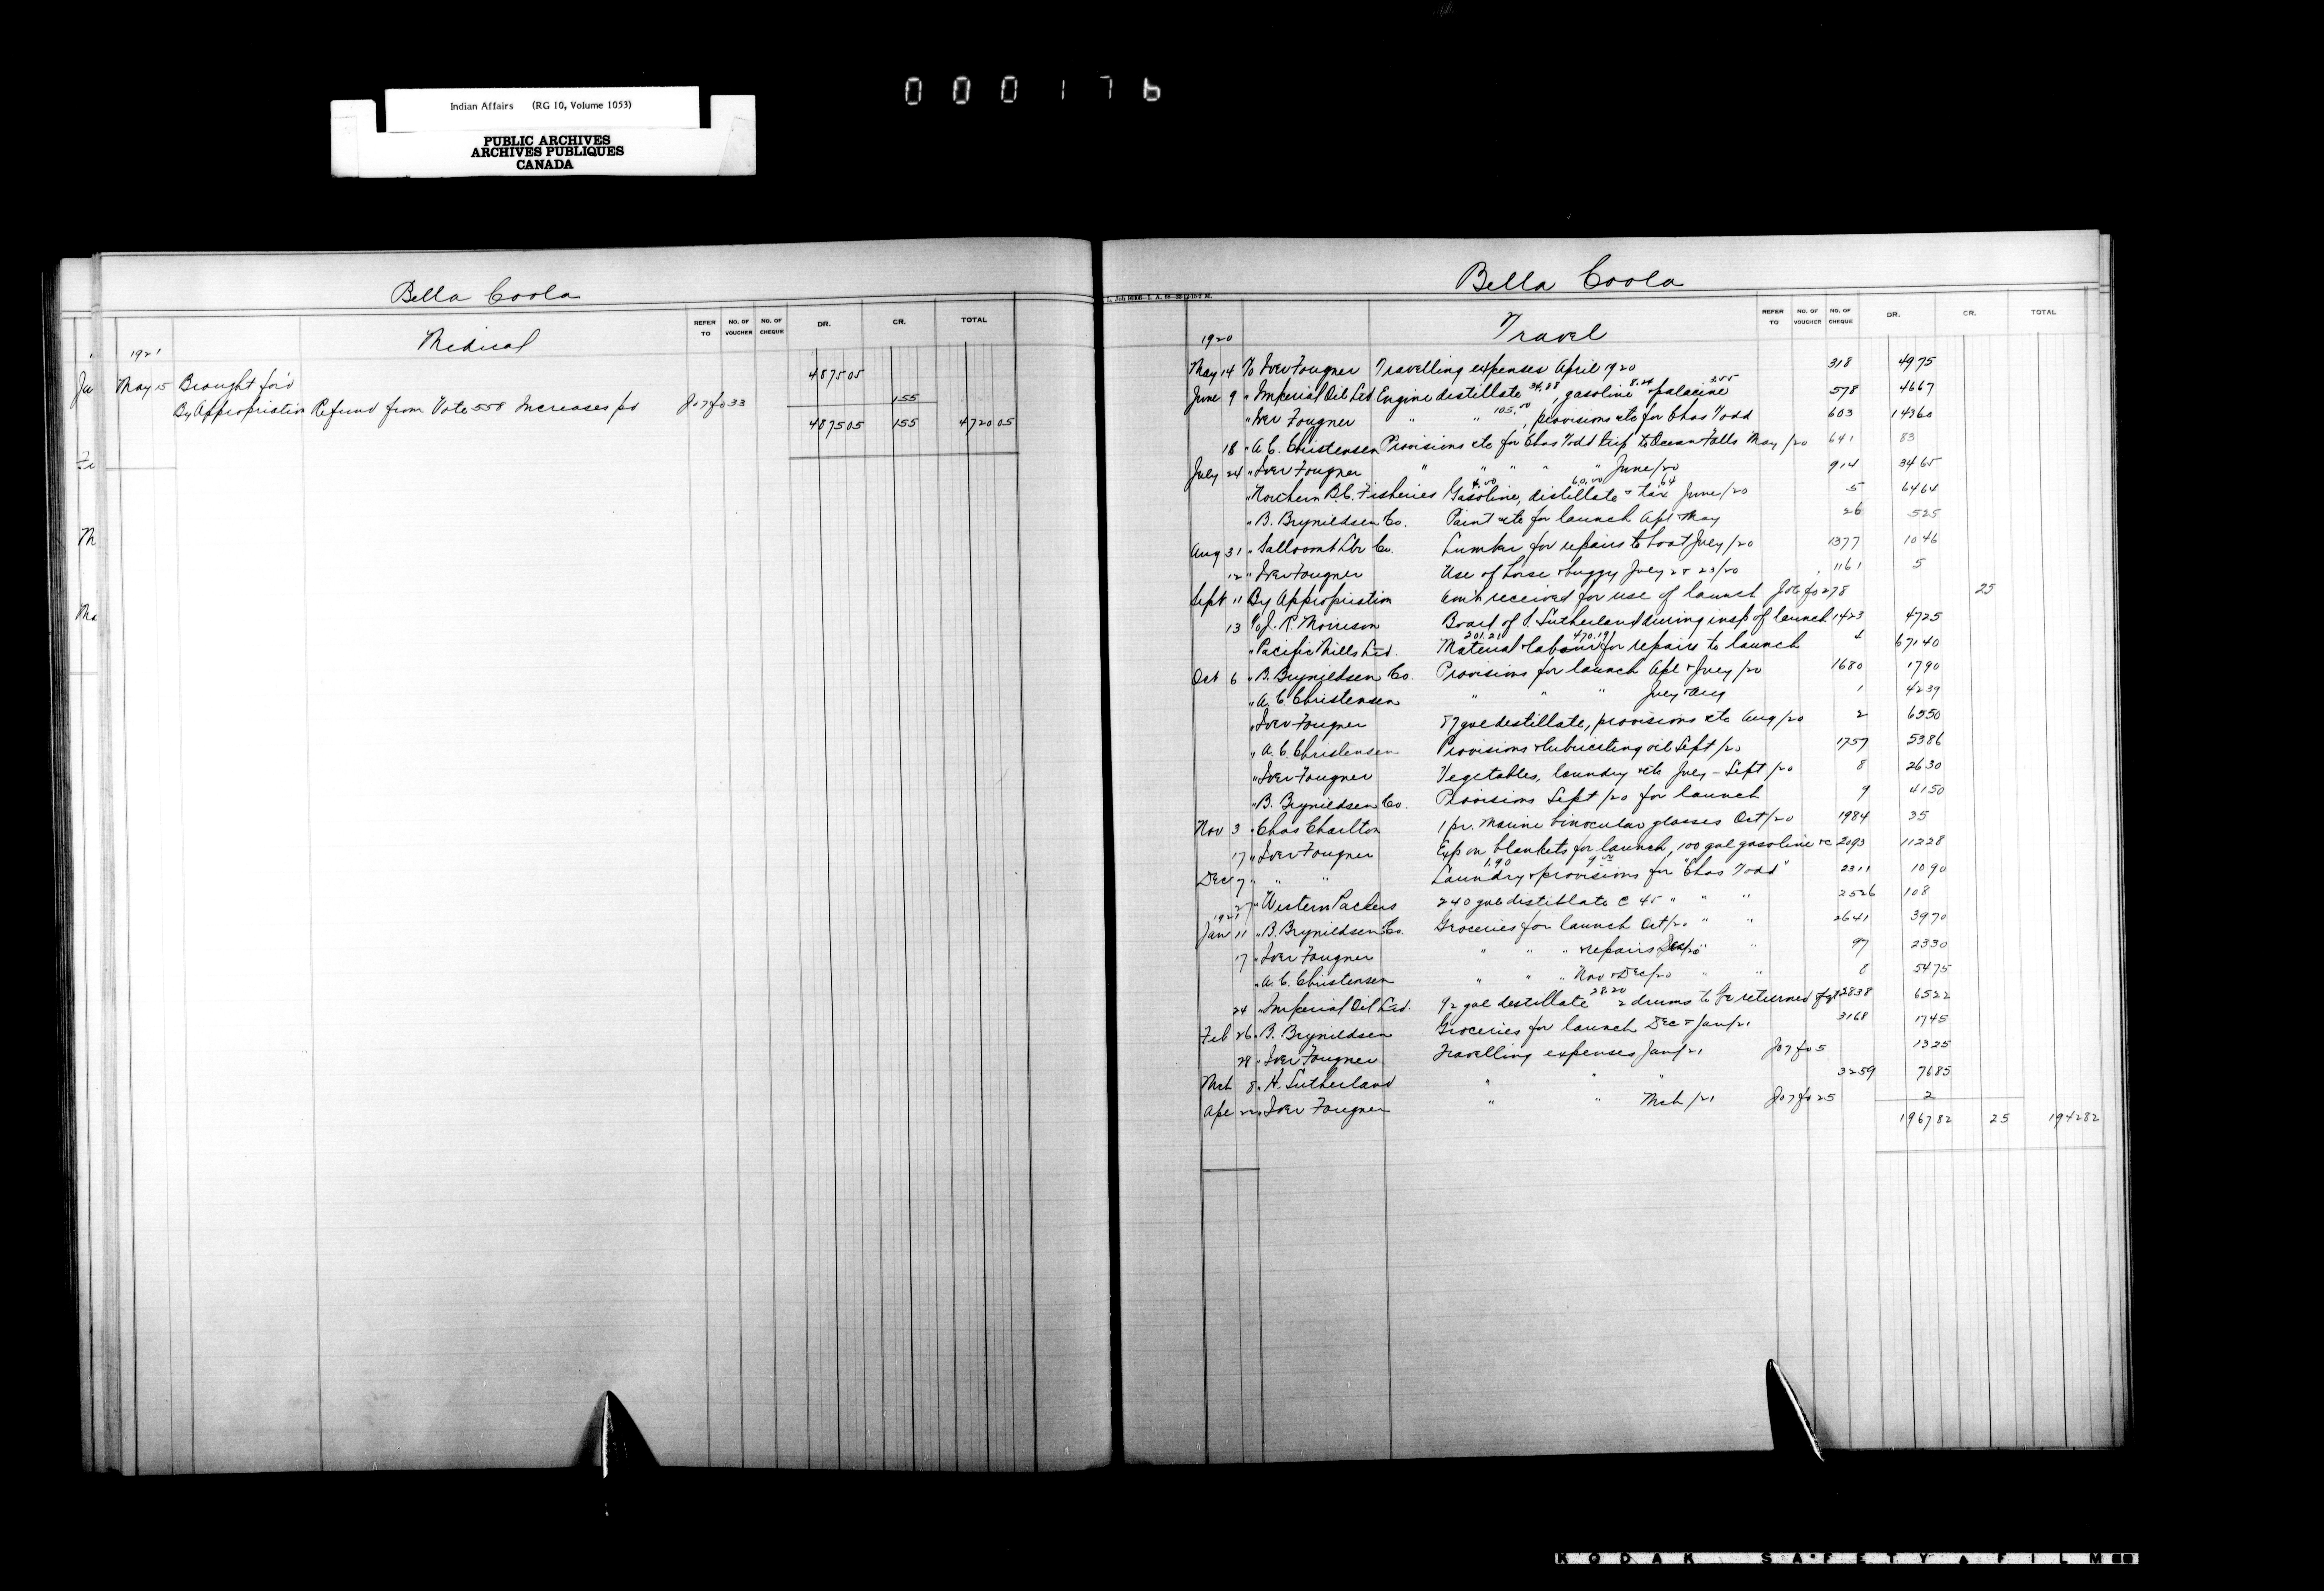 000176
Indian Affairs (RG 10, Volume 1053)
PUBLIC ARCHIVES
ARCHIVES PUBLIQUES
CANADA
Bella Coola
REFER TO NO. OF VOUCHER NO. OF CHEQUE DR. CR. TOTAL
Medical
1921
May 15 Brought for'd 487505
By Appropriation Refund from Vote 558 Increases pd Jo7fo33 155
487505 155 472005
Bella Coola
REFER TO NO. OF VOUCHER NO. OF CHEQUE DR. CR. TOTAL
Travel
1920
May 14 To Iver Fougner Travelling expenses April 1920 318 4975
June 9 " Imperial Oil Ltd Engine distillate 34.88, gasoline 8.24 & palacine 3.55 578 4667
" Iver Fougner " " 105.00, provisions etc for Chas Todd 603 14360
18 " A. C. Christensen Provisions etc for Chas Todd trip to Ocean Falls May /20 641 83
July 24 " Iver Fougner " " " " " June/20 914 3465
" Northern B.C. Fisheries Gasoline 4.00, distillate 60.00 & tax 64 June/20 5 6464
" B. Brynildsen Co. Paint etc for launch Apl & May 26 525
Aug 31 " Salloomt Lbr Co. Lumber for repairs to boat July/20 1377 1046
12 " Iver Fougner Use of horse & buggy July 2 & 23/20 1161 5
Sept 11 By Appropriation Am't received for use of launch Jo6fo278 25
13 To J. R. Morrison Board of J. Sutherland during insp of launch 1423 4725
" Pacific Mills Ltd. Material 201.21 & labour 470.19 for repairs to launch 4 67140
Oct 6 " B. Brynildsen Co. Provisions for launch Apl & July/20 1680 1790
" A. C. Christensen " " " July & Aug 1 4239
" Iver Fougner 87 gal distillate, provisions etc Aug/20 2 6550
" A. C. Christensen Provisions & lubricating oil Sept/20 1757 5386
" Iver Fougner Vegetables, laundry etc July - Sept/20 8 2630
" B. Brynildsen Co. Provisions Sept/20 for launch 9 4150
Nov 3 " Chas Charlton 1 pr. marine binocular glasses Oct/20 1984 35
17 " Iver Fougner Exp on blankets for launch, 100 gal gasoline &c 2093 11228
Dec 7 " " Laundry 1.90 & provisions 9.00 for "Chas Todd" 2311 1090
27 " Western Packers 240 gal distillate @ 45 " " " 2526 108
1921
Jan 11 " B. Brynildsen Co. Groceries for launch Oct/20 " " 2641 3970
17 " Iver Fougner " " " & repairs Dec/20 " " 97 2330
" A. C. Christensen " " " Nov & Dec/20 " " 8 5475
24 " Imperial Oil Ltd. 92 gal distillate 2 drums 28.20 to be returned 2838 6522
Feb 26 " B. Brynildsen Groceries for launch Dec & Jan/21 3168 1745
28 " Iver Fougner Travelling expenses Jan/21 Jo7fo5 1325
Mch 8 " H. Sutherland " " " 3259 7685
Apl 22 " Iver Fougner " " Mch/21 Jo7fo25 2
196782 25 194282
KODAK SAFETY FILM